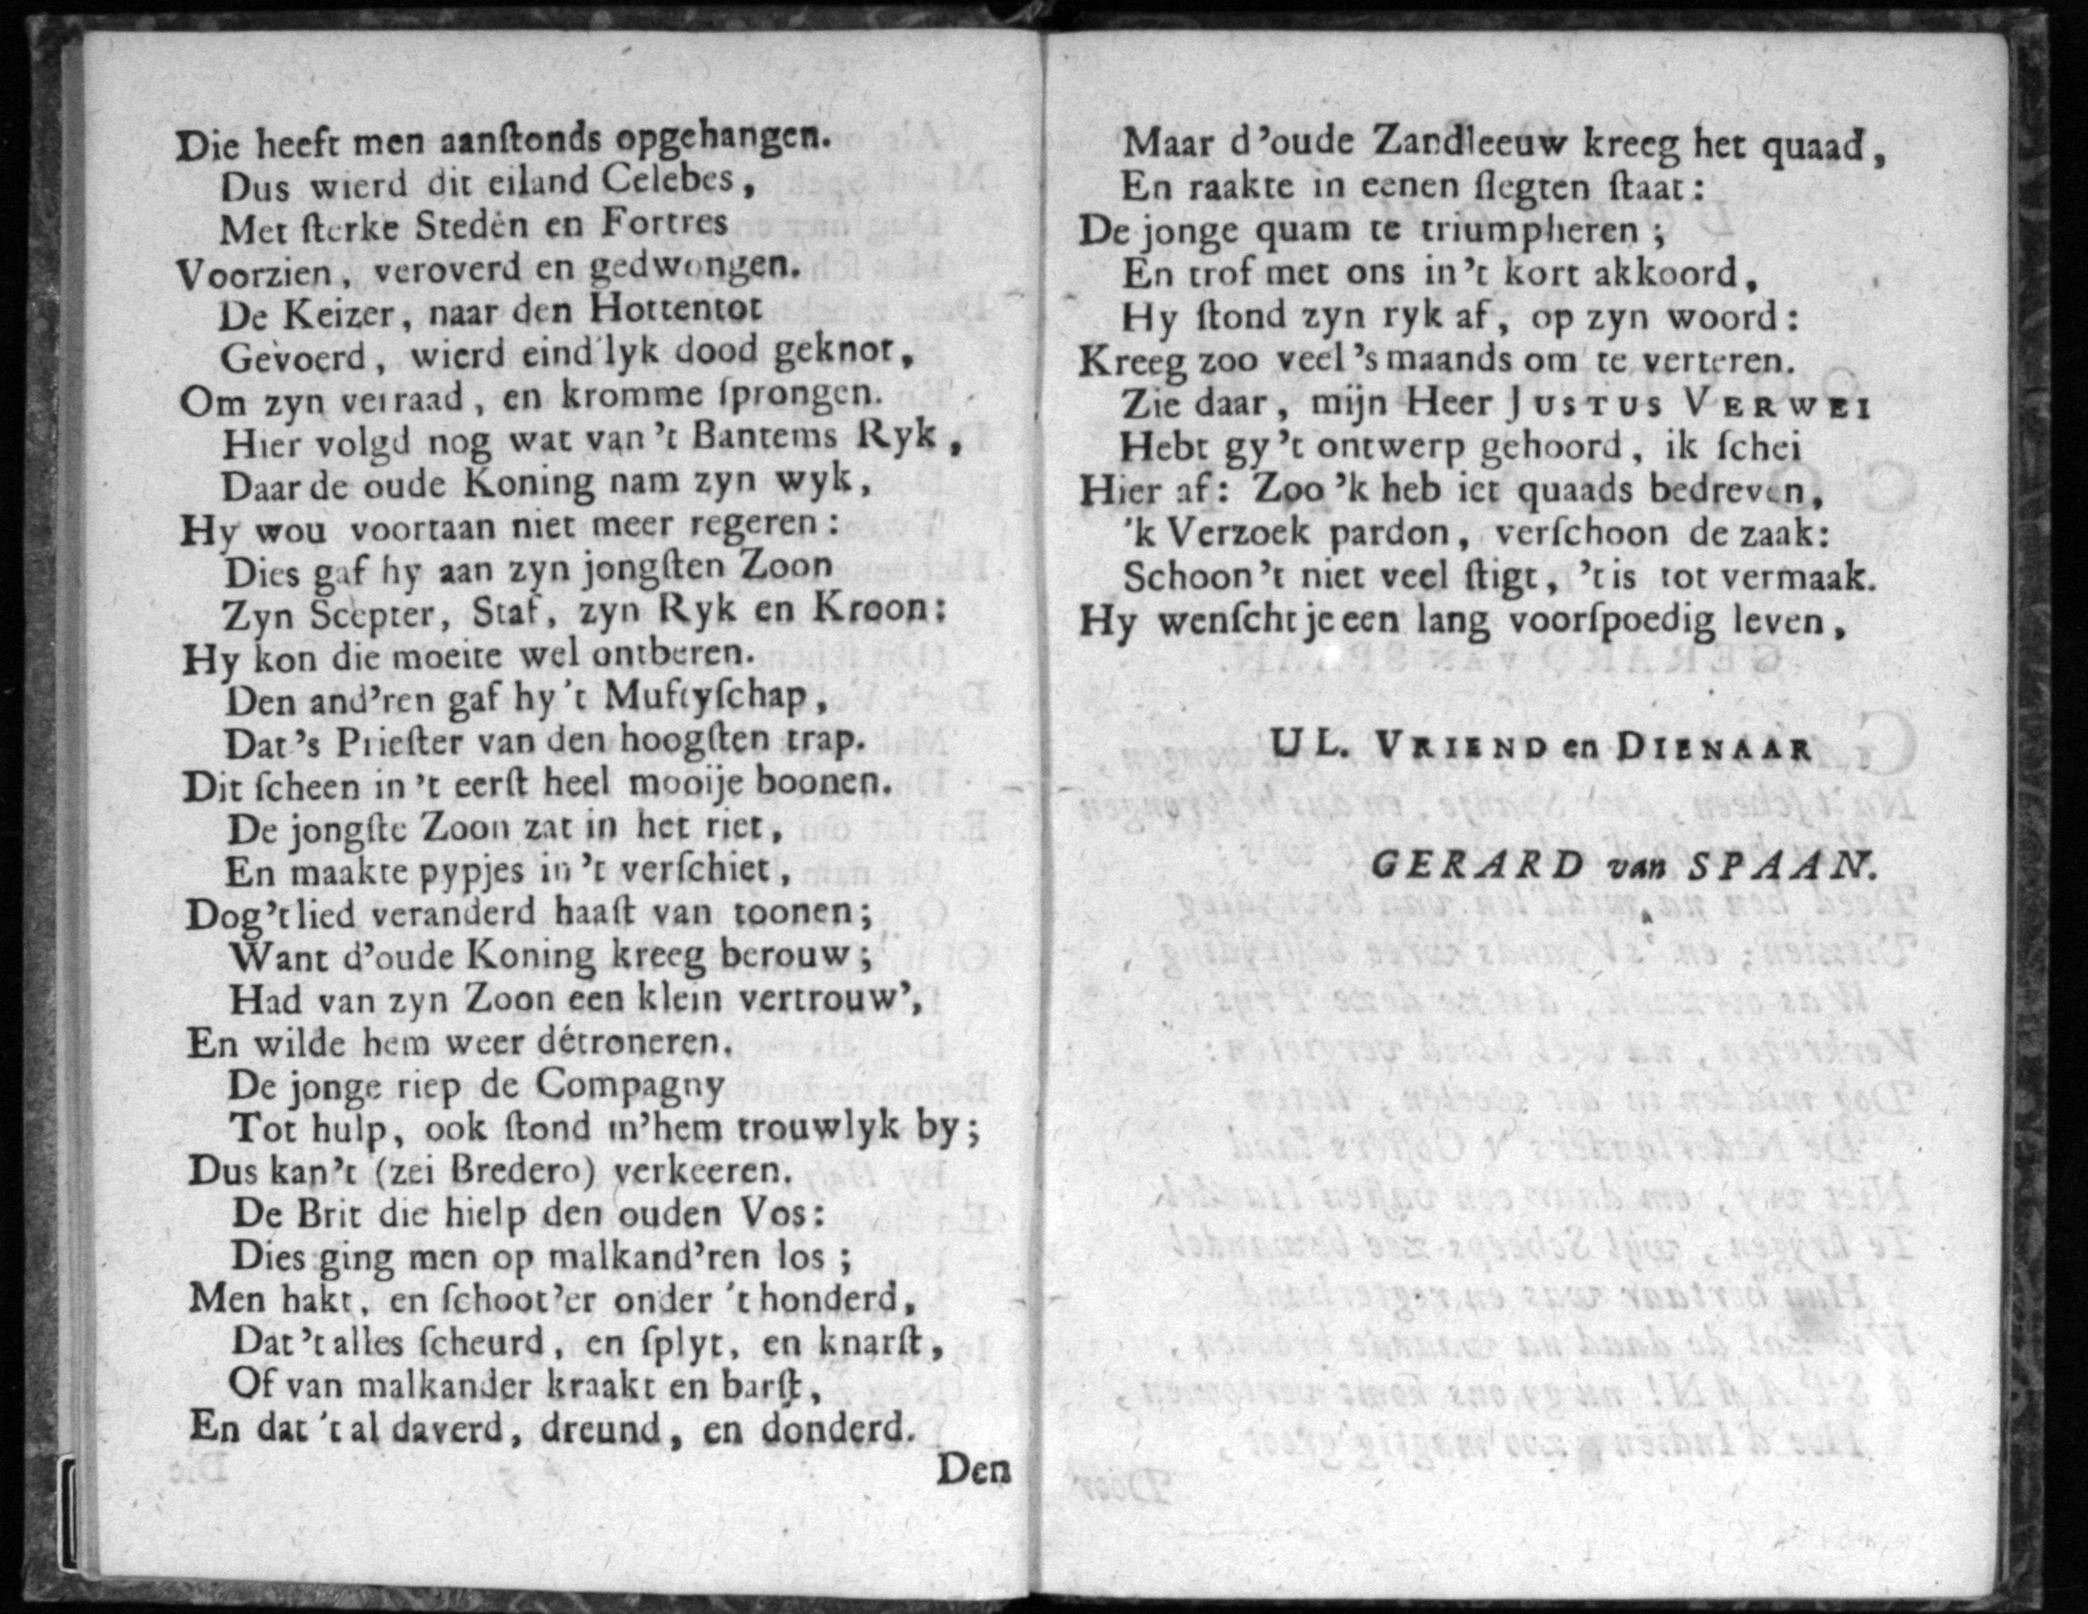 Die heeft men aanſtonds opgehangen.
Dus wierd dit eiland Celebes,
Met ſterke Steden en Fortres
Voorzien, veroverd en gedwongen.
De Keizer, naar den Hottentot
Gevoerd, wierd eind'lyk dood geknot,
Om zyn verraad, en kromme ſprongen.
Hier volgd nog wat van 't Bantems Ryk,
Daar de oude Koning nam zyn wyk,
Hy wou voortaan niet meer regeren:
Dies gaf hy aan zyn jongſten Zoon
Zyn Scepter, Staf, zyn Ryk en Kroon:
Hy kon die moeite wel ontberen.
Den and'ren gaf hy 't Muftyſchap,
Dat 's Prieſter van den hoogſten trap.
Dit ſcheen in 't eerſt heel mooije boonen.
De jongſte Zoon zat in het riet,
En maakte pypjes in 't verſchiet,
Dog 't lied veranderd haaſt van toonen;
Want d'oude Koning kreeg berouw;
Had van zyn Zoon een klein vertrouw',
En wilde hem weer détroneren.
De jonge riep de Compagny
Tot hulp, ook ſtond m'hem trouwlyk by;
Dus kan't (zei Bredero) verkeeren.
De Brit die hielp den ouden Vos:
Dies ging men op malkand'ren los;
Men hakt, en ſchoot'er onder 't honderd,
Dat 't alles ſcheurd, en ſplyt, en knarſt,
Of van malkander kraakt en barſt,
En dat 't al daverd, dreund, en donderd.
Den
Maar d'oude Zandleeuw kreeg het quaad,
En raakte in eenen ſlegten ſtaat:
De jonge quam te triumpheren;
En trof met ons in 't kort akkoord,
Hy ſtond zyn ryk af, op zyn woord:
Kreeg zoo veel 's maands om te verteren.
Zie daar, mijn Heer JUSTUS VERWEI
Hebt gy 't ontwerp gehoord, ik ſchei
Hier af: Zoo 'k heb iet quaads bedreven,
'k Verzoek pardon, verſchoon de zaak:
Schoon 't niet veel ſtigt, 't is tot vermaak.
Hy wenſcht je een lang voorſpoedig leven,
UL. VRIEND en DIENAAR
GERARD van SPAAN.